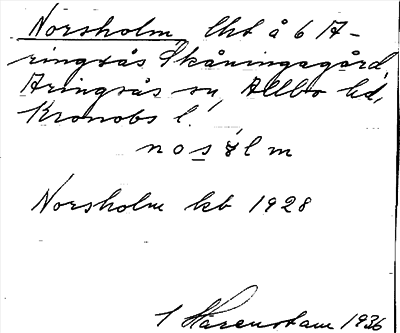 Norsholm, lht å 6 A-
ringsås Skåningagård,
Aringsås sn, Allbo hd,
Kronobs l.
nosølm
Norsholm kb 1928
1936